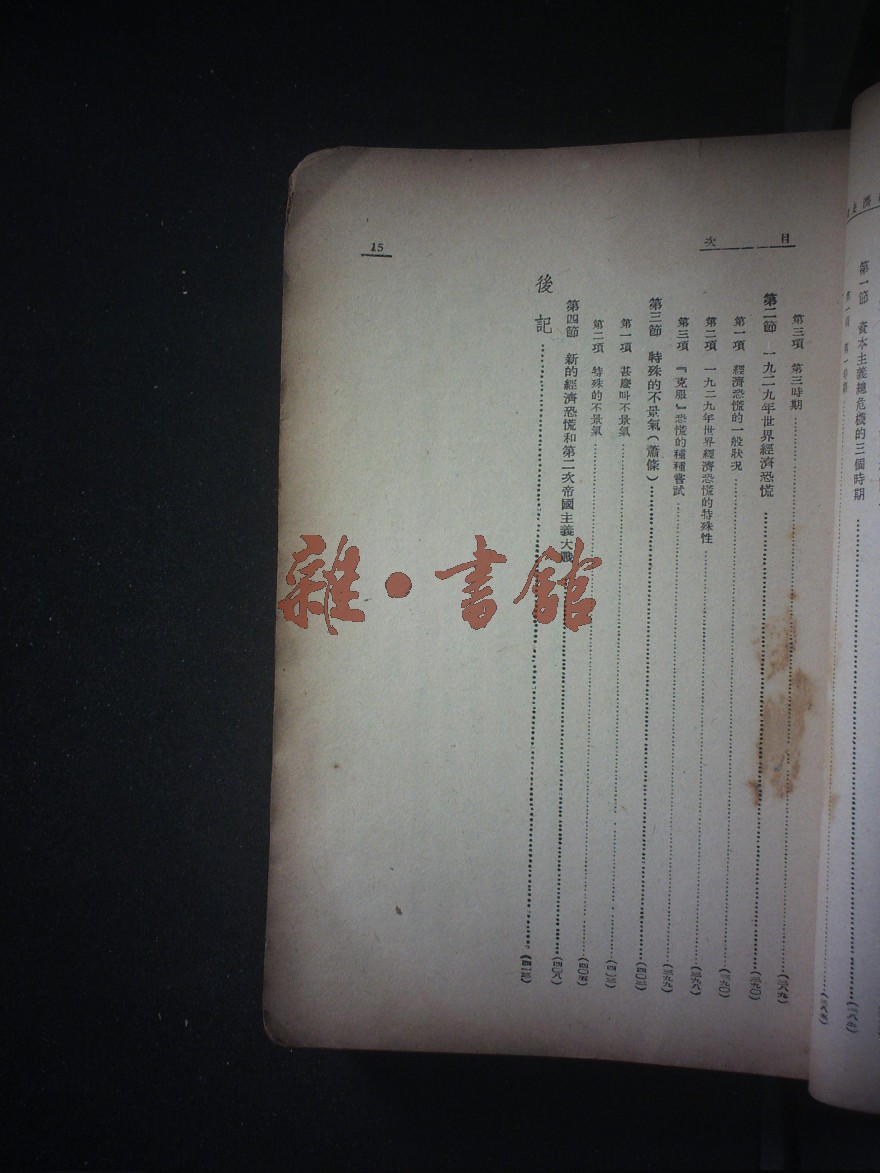 第一節 資本主義總危機的三個時期
目次
第三項 第三時期 (三八九)
第二節 一九二九年世界經濟恐慌 (三九〇)
第一項 經濟恐慌的一般狀况 (三九〇)
第二項 一九二九年世界經濟恐慌的特殊性 (三九八)
第三項 『克服』恐慌的種種嘗試 (三九九)
第三節 特殊的不景氣(蕭條) (四〇三)
第一項 甚麼叫不景氣
第二項 特殊的不景氣 (四〇五)
第四節 新的經濟恐慌和第二次帝國主義大戰 (四〇八)
後記
15
雜·書館